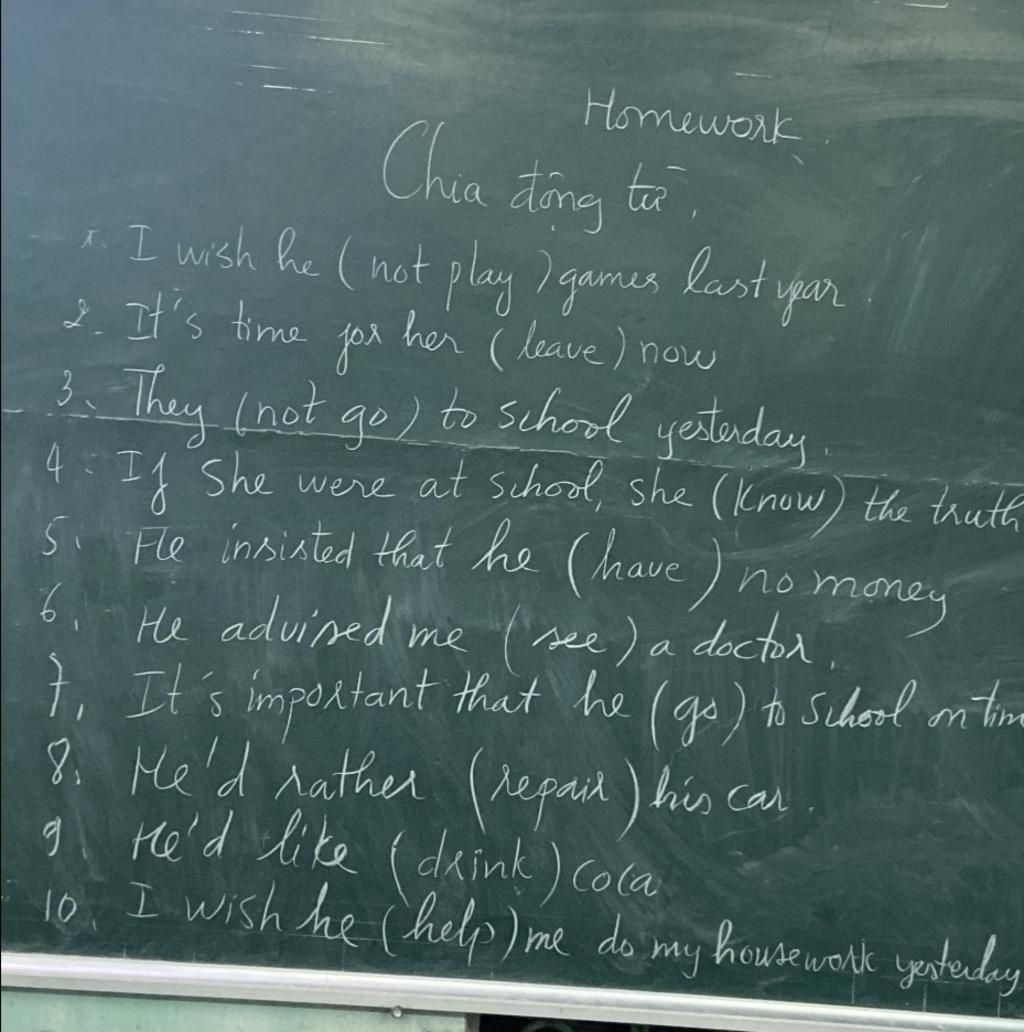 Homework.
Chia động từ.
1. I wish he (not play) games last year
2. It's time for her (leave) now
3. They (not go) to school yesterday.
4. If She were at school, she (know) the truth
5. He insisted that he (have) no money
6. He advised me (see) a doctor.
7. It's important that he (go) to School on tim
8. He'd rather (repair) his car.
9 He'd like (drink) coca
10. I wish he (help) me do my housework yesterday